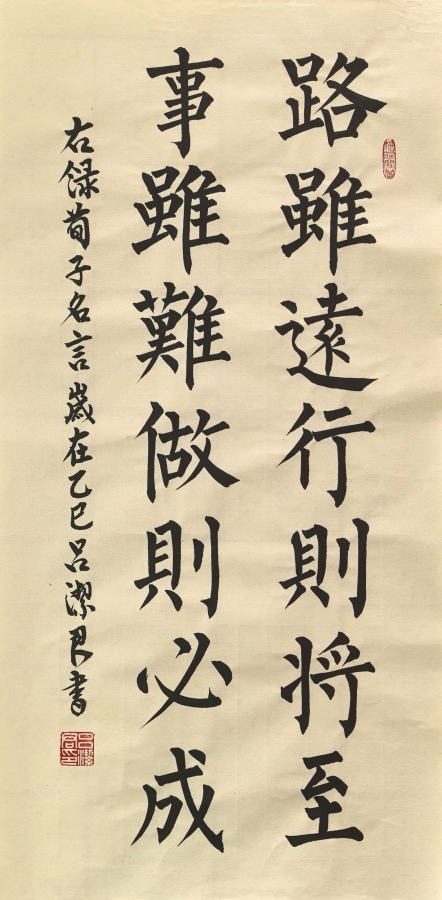 路雖遠行則将至
事雖難做則必成
右録荀子名言歲在乙巳呂潔良書